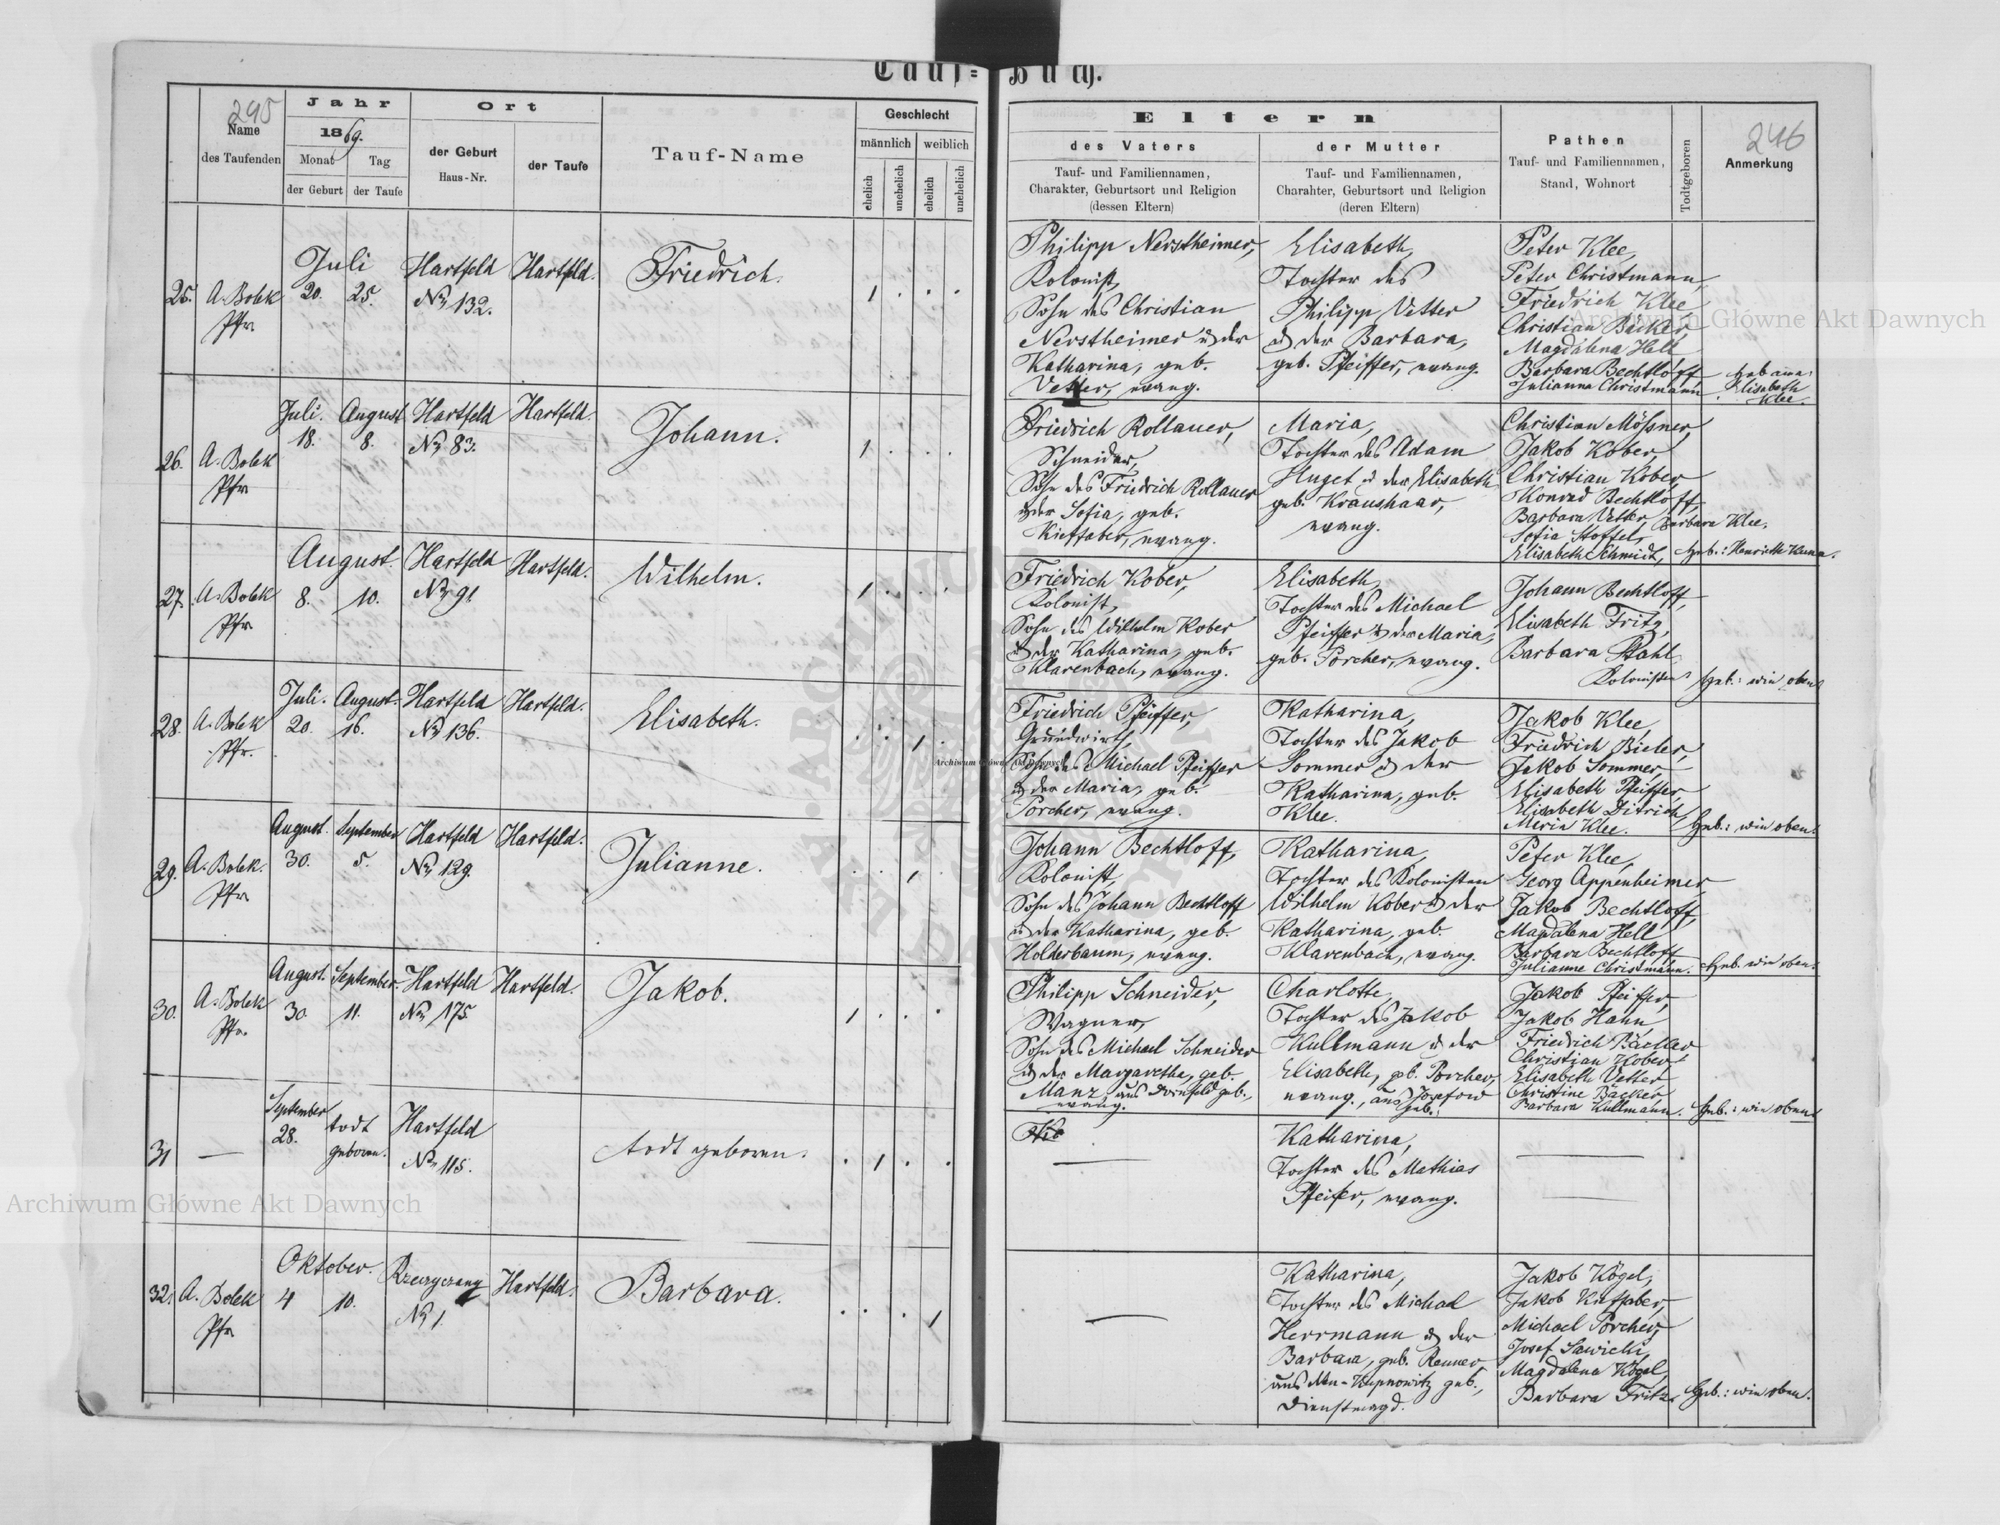 Tauf=Buch.
295
Name
des Taufenden
Jahr
1869.
Monat
Tag
der Geburt
der Taufe
Ort
der Geburt
Haus-Nr.
der Taufe
Tauf-Name
Geschlecht
männlich
weiblich
ehelich
unehelich
ehelich
unehelich
Eltern
des Vaters
Tauf- und Familiennamen,
Charakter, Geburtsort und Religion
(dessen Eltern)
der Mutter
Tauf- und Familiennamen,
Charahter, Geburtsort und Religion
(deren Eltern)
Pathen
Tauf- und Familiennamen,
Stand, Wohnort
Todtgeboren
246
Anmerkung
25.
A. Bolek
Pfr
Juli
20.
25.
Hartfeld
No 132.
Hartfeld.
Friedrich.
1 . . .
Philipp Nerstheimer,
Kolonist,
Sohn des Christian
Nerstheimer u der
Katharina, geb.
Vetter, evang.
Elisabeth,
Tochter des
Philipp Vetter
u der Barbara,
geb. Pfeiffer, evang.
Peter Klee,
Peter Christmann,
Friedrich Klee
Christian Bäcker,
Magdalena Hell
Barbara Bechtloff
Julianna Christmann
Elisabeth
Klee.
26.
A. Bolek
Pfr
Juli.
18.
August
8.
Hartfeld
No 83.
Hartfeld.
Johann.
1 . . .
Friedrich Rollauer,
Schneider,
Sohn des Friedrich Rollauer
u der Sofia, geb.
Kieffaber, evang.
Maria,
Tochter des Adam
Huget u der Elisabeth
geb. Kraushaar,
evang.
Christian Mößner,
Jakob Kober,
Christian Kober,
Konrad Bechtloff,
Barbara Vetter, Barbara Klee.
Sofia Stoffel,
Elisabeth Schmidt,
Geb.: Henriette
27.
A. Bolek
Pfr
August.
8.
10.
Hartfeld
No 91
Hartfeld.
Wilhelm.
1 . . .
Friedrich Kober,
Kolonist,
Sohn des Wilhelm Kober
u der Katharina, geb.
Klarenbach, evang.
Elisabeth,
Tochter des Michael
Pfeiffer u der Maria,
geb. Porcher, evang.
Johann Bechtloff,
Elisabeth Fritz,
Barbara Stahl,
Kolonisten
Geb.: wie oben
28.
A. Bolek
Pfr.
Juli.
20.
August.
16.
Hartfeld
No 136.
Hartfeld.
Elisabeth.
. . 1 .
Friedrich Pfeiffer,
Grundwirth,
Sohn des Michael Pfeiffer
u der Maria, geb.
Porcher, evang.
Katharina,
Tochter des Jakob
Sommer u der
Katharina, geb.
Klee.
Jakob Klee,
Friedrich Bieler,
Jakob Sommer,
Elisabeth Pfeiffer
Elisabeth Ditrich,
Maria Klee.
Geb.: wie oben.
29.
A. Bolek.
Pfr
August.
30.
September
5.
Hartfeld
No 129.
Hartfeld.
Julianne.
. . 1 .
Johann Bechtloff,
Kolonist,
Sohn des Johann Bechtloff
u der Katharina, geb.
Holderbaum, evang.
Katharina,
Tochter des Kolonisten
Wilhelm Kober u der
Katharina, geb.
Klarenbach, evang.
Peter Klee,
Georg Appenheimer,
Jakob Bechtloff,
Magdalena Hell
Barbara Bechtloff
Julianne Christmann.
Geb. wie oben.
30.
A. Bolek
Pfr.
August.
30.
September.
11.
Hartfeld
No 175.
Hartfeld.
Jakob.
1 . . .
Philipp Schneider,
Wagner,
Sohn des Michael Schneider
u der Margaretha, geb.
Manz, aus Dornfeld geb.,
evang.
Charlotte,
Tochter des Jakob
Kullmann u der
Elisabeth, geb. Porcher,
evang., aus Josefow
geb.
Jakob Pfeiffer,
Jakob Hahn
Friedrich Bäcker
Christian Kober
Elisabeth Vetter
Christine Bäcker
Barbara Kullmann.
Geb.: wie oben
31
—
September
28.
todt
geboren.
Hartfeld
No 115.
todt geboren.
. 1 . .
Katharina,
Tochter des Mathias
Pfeifer, evang.
32.
A. Bolek
Pfr
Oktober.
4
10.
Rzeczyczany
No 1.
Hartfeld.
Barbara.
. . . 1
Katharina,
Tochter des Michael
Herrmann u der
Barbara, geb. Renner
aus Neu-Kupnowitz geb.,
Dienstmagd.
Jakob Kögel,
Jakob Kieffaber,
Michael Porcher,
Josef Sawicki,
Magdalena Kögel,
Barbara Fritz.
Geb.: wie oben.
Archiwum Główne Akt Dawnych
Archiwum Główne Akt Dawnych
Archiwum Główne Akt Dawnych